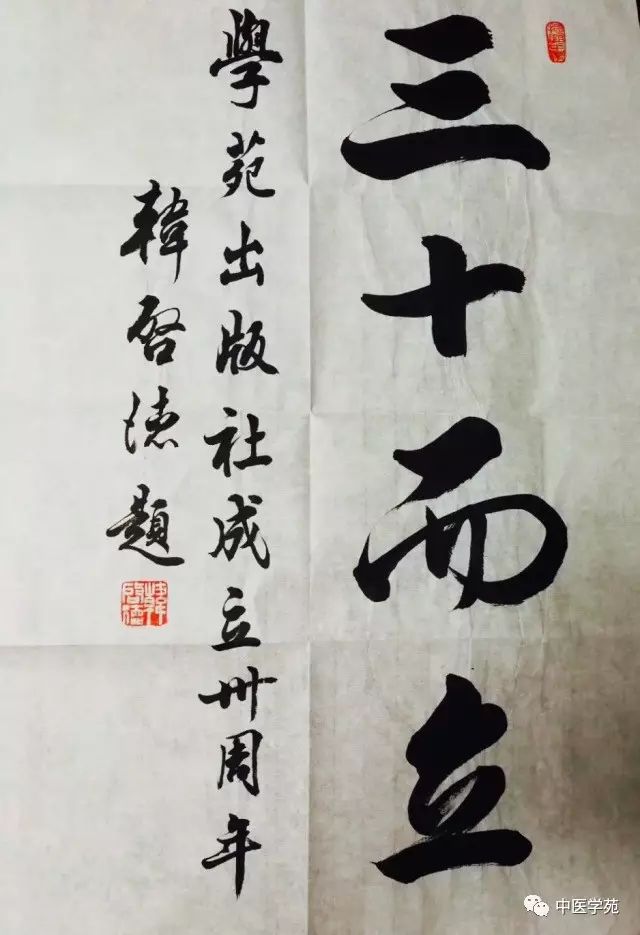 三十而立
學苑出版社成立卅周年
韓啓德題
中医学苑